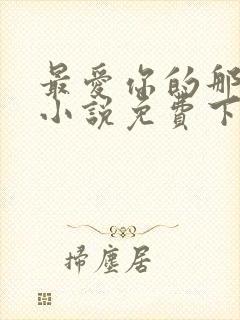 最爱你的那
小说免費下
掃塵居